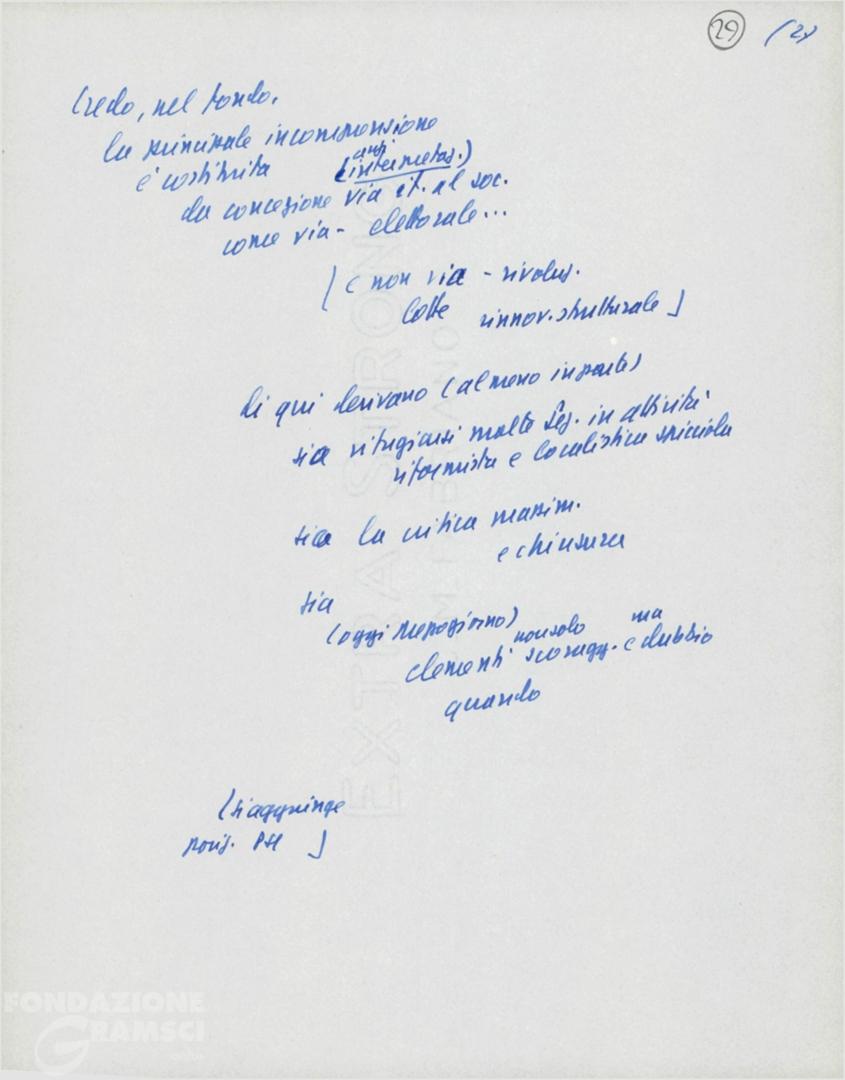 29 (2)
Credo, nel fondo,
la principale incomprensione
anzi
è costituita (interpretaz.)
da concezione via it. al soc.
come via - elettorale...
[e non via - rivoluz.
lotte rinnov. strutturale]
di qui derivano (almeno in parte)
sia rifugiarsi molte Sez. in attività
riformista e localistica spicciola
sia la critica massim.
e chiusura
sia
(oggi Mezzogiorno)
non solo ma
elementi scoragg. e dubbio
quando
(si aggiunge
posiz. PSI ]
EXTRA STRONG
FABRIANO
FONDAZIONE
GRAMSCI